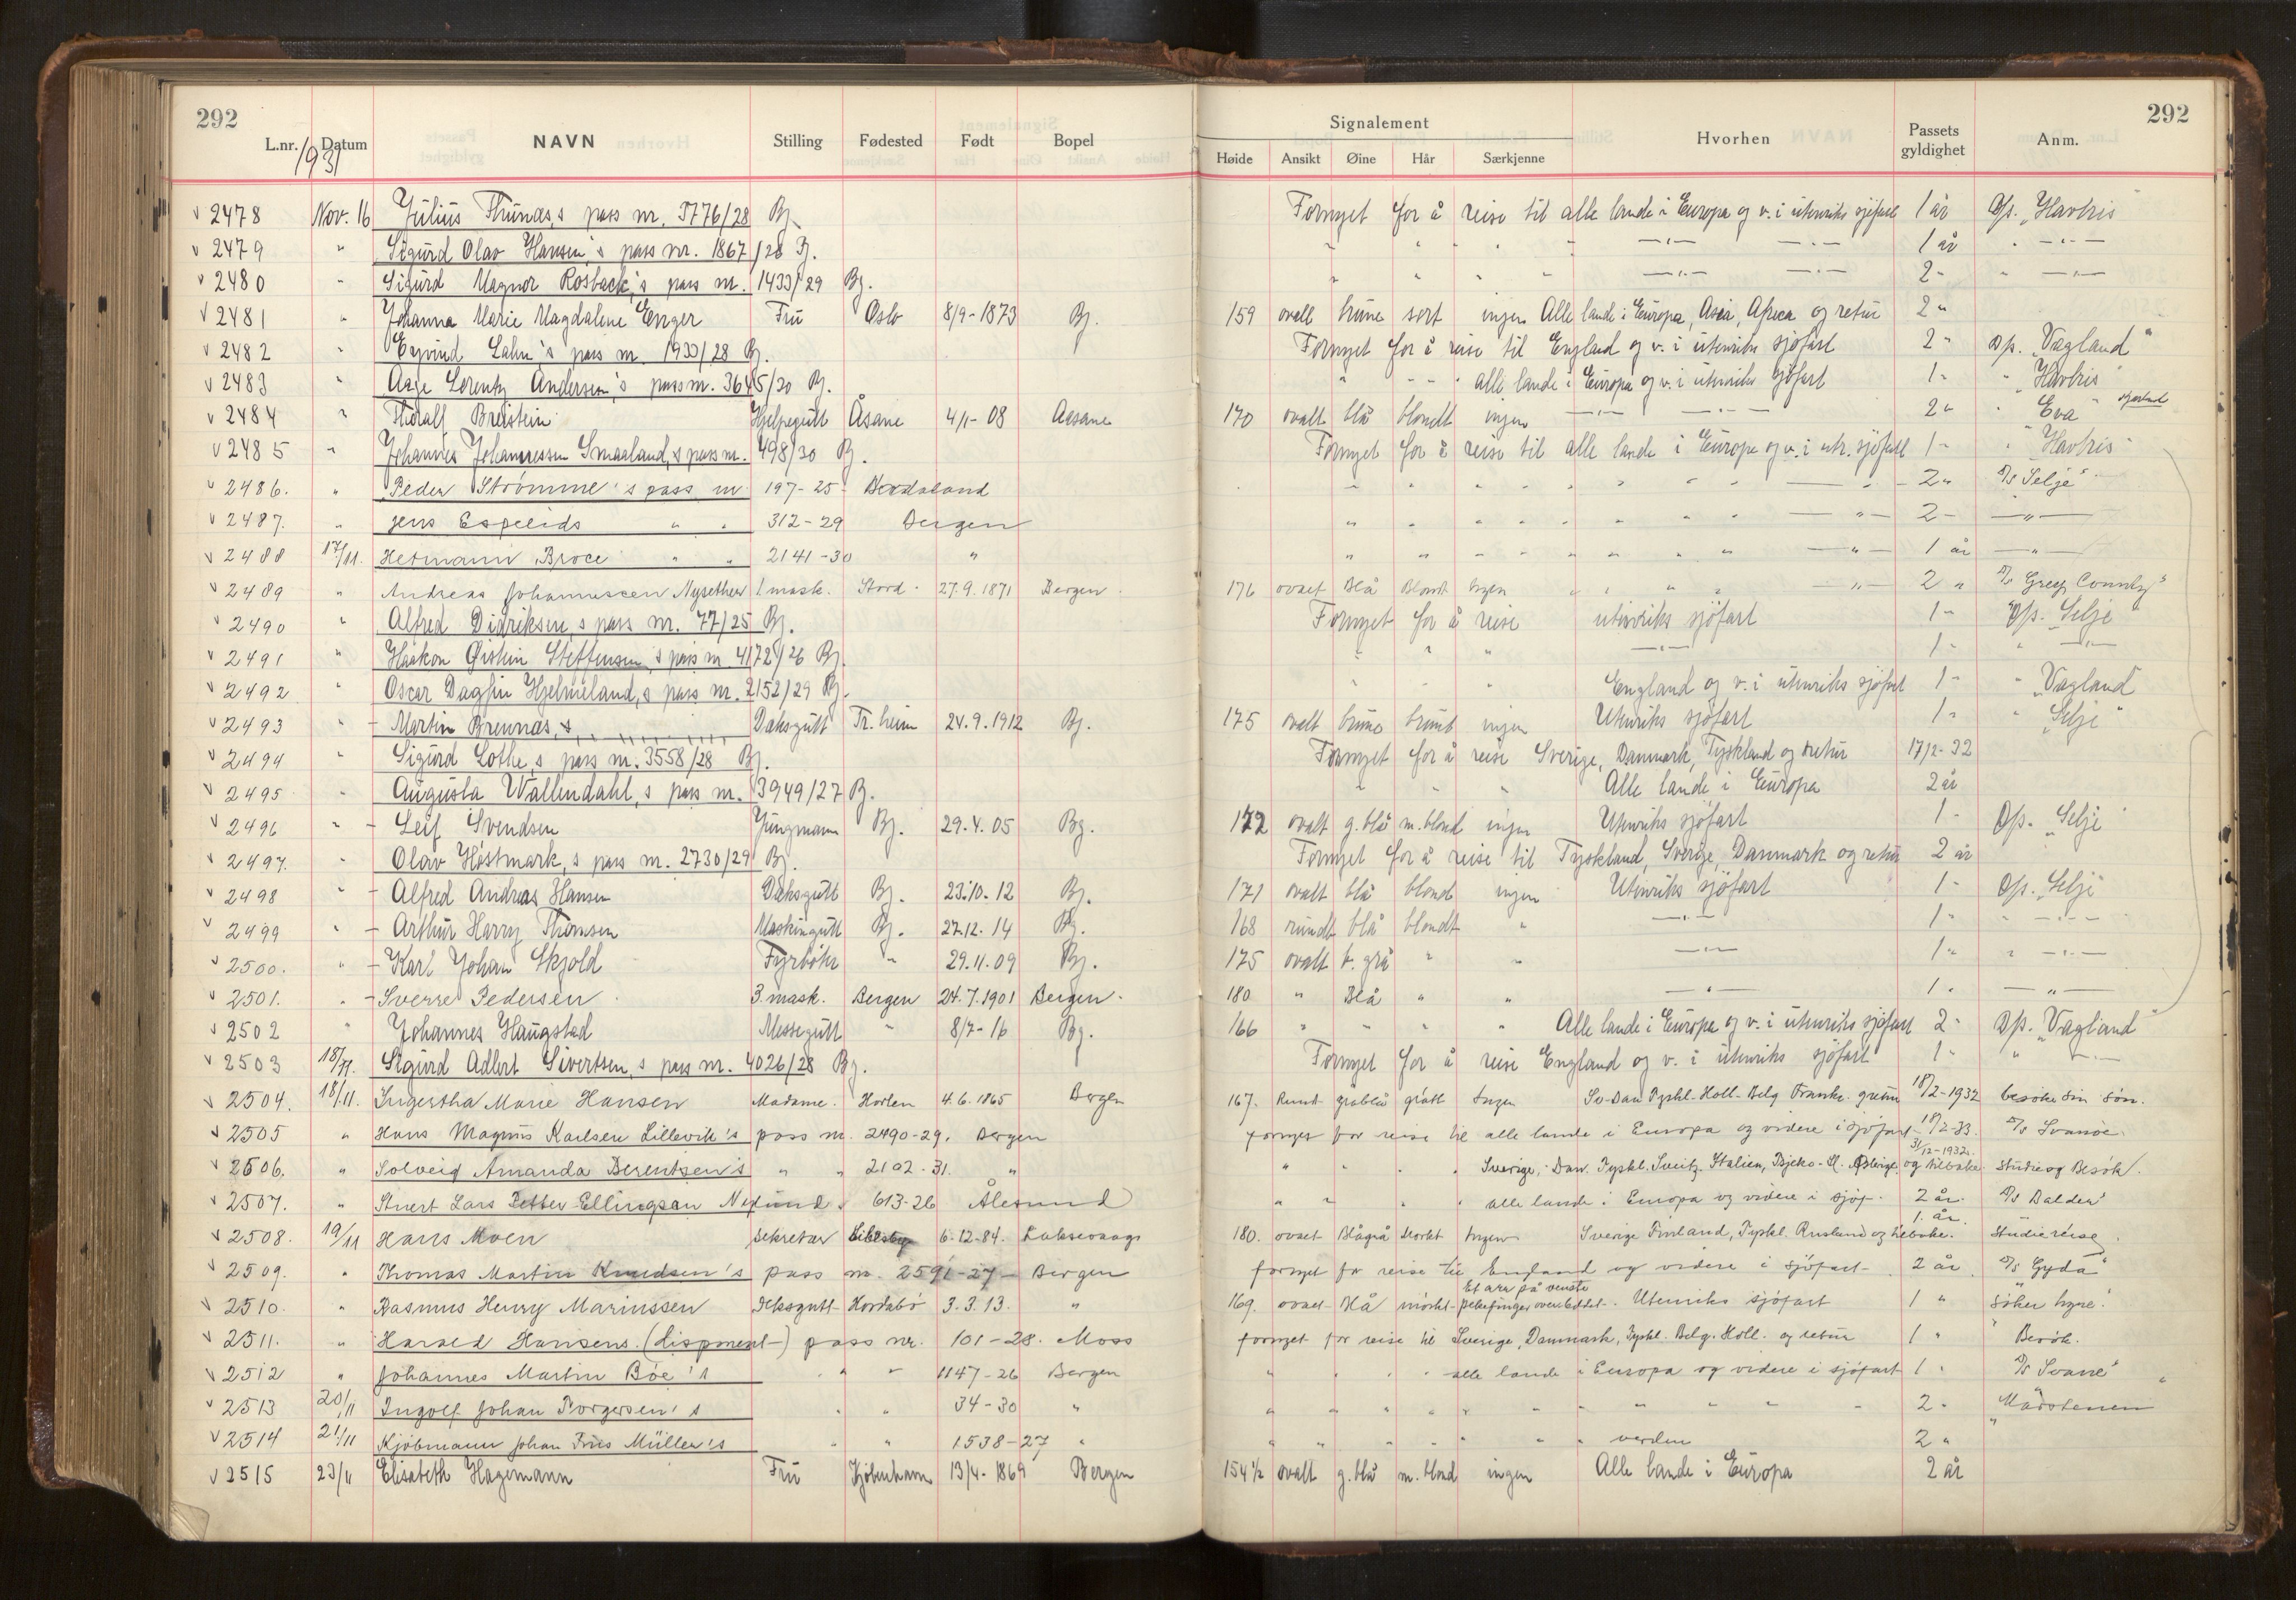 292
292
L.nr. Datum NAVN Stilling Fødested Født Bopel Signalement Høide Ansikt Øine Hår Særkjenne Hvorhen Passets gyldighet Anm.
1931
2478 Nov. 16 Julius pass nr. /28 Bg. Fornyet for å reise til alle lande i Europa og v. i utenriks sjøfart 1 år D/s. „Havbris"
2479 " Sigurd Olav Hansen's pass nr. 1867/28 B. " " " " " —"— —"— 1 år " —"—
2480 " Sigurd Magnor Rosback's pass nr. 1433/29 Bg. " " " " —"— —"— 2 " " —"—
2481 " Johanna Marie Magdalene Enger Fru Oslo 8/9-1873 Bg. 159 ovalt brune sort ingen Alle lande i Europa, Asia, Africa og retur 2 "
2482 " Eyvind Lahn's pass nr. 1933/28 Bg. Fornyet for å reise til England og v. i utenriks sjøfart 2 " D/s. „Vagland"
2483 " Aage Lorentz Andersen's pass nr. 3645/30 Bg. " " " " alle lande i Europa og v. i utenriks sjøfart 1 " " „Havbris"
2484 " Breistein Hjelpegutt Åsane 4/1-08 Aasane 170 ovalt blå blondt ingen —"— —"— 2 " " „Eva"
2485 " Johannes Johannessen Smaaland,s pass nr. 498/30 Bg. Fornyet for å reise til alle lande i Europa og v. i utr. sjøfart 1 " " „Havbris"
2486. " Peder Strømme's pass nr. 197-25 " " " " " " " —"— 2 " D/s Selje"
2487. " Jens Espelids " " 312-29 Bergen " " " " " " " " —"— 2 " —"—
2488 17/11. Hermann Broce " " 2141-30 " " " " " " " " " —"— 1 år —"—
2489 " Andreas Johannessen Nysether 1. mask. Stord. 27.9.1871 Bergen. 176 ovalt Blå Blondt Ingen " " " " —"— 2 " D/s Greg Connby"
2490 " Alfred Didriksen,s pass nr. 77/25 Bg. Fornyet for å reise utenriks sjøfart 1 " D/s. „Selje"
2491 " Håkon Øistein Steffensen,s pass nr. 4172/26 Bg. " " " —"— 1 " " —"—
2492 " Oscar Dagfin Hjelmeland,s pass nr. 2152/29 Bg. " " " England og v. i utenriks sjøfart 1 " " „Vagland
2493 " - Martin Brennås,s Daksgutt Tr.heim 24.9.1912 Bg. 175 ovalt brune brunt ingen Utenriks sjøfart 1 " " „Selje"
2494 " Sigurd Lothe,s pass nr. 3558/28 Bg. Fornyet for å reise Sverige, Danmark, Tyskland og retur 17/2-32
2495 " Augusta Wallendahl,s pass nr. 3949/27 B. " " " Alle lande i Europa 2 år
2496 " - Leif Svendsen Jungmann Bg. 29.4.05 Bg. 172 ovalt g.blå m.blond ingen Utenriks sjøfart 1 " D/s. „Selje"
2497. " Olav Høstmark,s pass nr. 2730/29 Bg. Fornyet for å reise til Tyskland, Sverige, Danmark og retur 2 år
2498 " - Alfred Andreas Hansen Daksgutt Bg. 23.10.12 Bg. 171 ovalt blå blond ingen Utenriks sjøfart 1 " D/s. „Selje"
2499 " - Arthur Harry Thomsen Maskingutt Bg. 27.12.14 Bg. 168 rundt blå blondt " —"— 1 " " —"—
2500. " - Karl Johan Skjold Fyrbøter " 29.11.09 Bg. 175 ovalt b.grå " " —"— 1 " " —"—
2501. " - Sverre Pedersen 3. mask. Bergen 24.7.1901 Bergen. 180 " Blå " " —"— 1 " —"—
2502 " Johannes Haugstad Messegutt " 8/7-16 Bg. 166 " " " " Alle lande i Europa og v. i utenriks sjøfart 2 " D/s. „Vagland"
2503 18/11. Sigurd Adlert Sivertsen,s pass nr. 4026/28 Bg. Fornyet for å reise England og v. i utenriks sjøfart 1 " " —"—
2504. 18/11. Ingertha Marie Hansen Madame. Horten 4.6.1865 Bergen 167. Rund gråblå grått Ingen Sv-Dan Tyskl-Holl-Belg Frankr. 18/2-1932 besøke sin søn.
2505 " Hans Magnus Karlsen Lillevik's pass nr. 2490-29. Bergen fornyet for reise til alle lande i Europa og videre i sjøfart 18/2-33. D/s Svanøe.
2506. " Solveig Amanda Berentzen's " " 2102-31. " " " " " Sverige, Dan. Tyskl. Sveitz. Italien, og tilbake 31/12-1932. Studie og Besøk.
2507. " Lars Petter Ellingsen 613-26 Ålesund " " " " alle lande i Europa og videre i sjøf. 2 år. D/s Balder"
2508. 19/11 Hans Moen Sekretær 6.12-84. Laksevaag 180. ovalt Blågrå Mørkt Ingen Sverige Finland, Tyskl. Rusland og tilbake. 1. år. Studiereise.
2509. " Thomas Martin Knudsen's pass nr. 2591-27 - Bergen fornyet for reise til England og videre i sjøfart - 2 år. D/s Gyda"
2510. " Rasmus Henry Marinussen Deksgutt Hordabø 3.3.13. " 169. ovalt Blå mørkt Et arr på venste pekefinger Utenriks sjøfart 1 " „Søker hyre".
2511. " Harald Hansens. (disponent) pass nr. 101-28. Moss fornyet for reise til Sverige, Danmark, Tyskl. Belg. Holl. og retur 1 " Besøk.
2512 " Johannes Martin Bøe's " " 1147-26 Bergen " " " alle lande i Europa og videre i sjøfart 1 " D/s
2513 20/11 Ingolf Johan Torgersen's " " 34-30 " " " " " " " " " " " 2 "
2514 21/11 Kjøbmann Johan Friis Müller's " " 1538-27 " " " " " " " " verden 2 "
2515 23/11 Elisabeth Hagemann Fru Kjøbenhavn 13/4-1869 Bergen 154½ ovalt g.blå m.blond ingen Alle lande i Europa 2 år